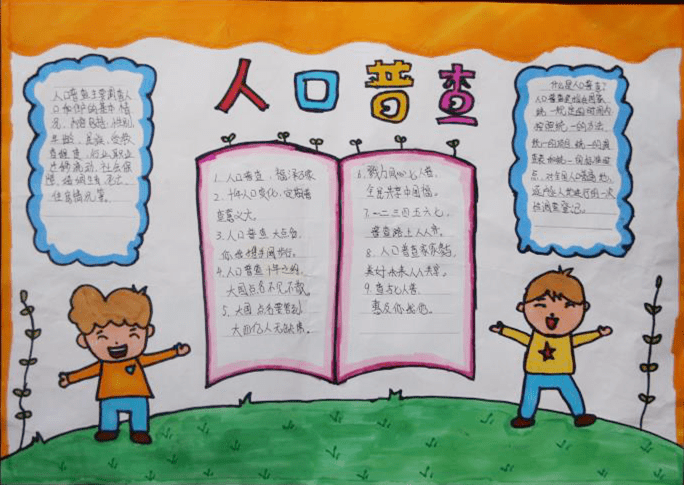 人口普查
人口普查主要调查人
口和住户的基本情
况，内容包括：性别、
年龄、民族、受教
育程度、行业、职业、
迁移流动、社会保
障、婚姻生育、死亡、
住房情况等。
1、人口普查，福泽万家
2、十年人口变化，定期普
查意义大。
3、人口普查大点名，
你我携手同行。
4、人口普查十年之约，
大国点名不见不散。
5、大国点名要帮到
大 亿人无缺席。
6、戮力同心七人普，
全民共享中国福。
7、一二三四五六七，
普查路上人人齐。
8、人口普查家家参与，
美好未来人人共享。
9、普七人普
惠及你我他。
什么是人口普查？
人口普查是指在国家
统一规定的时间内
按照统一的方法、
统一的项目、统一的调
查表和统一的标准时
点，对全国人口普遍地、
逐户逐人地进行的一次
性调查登记。